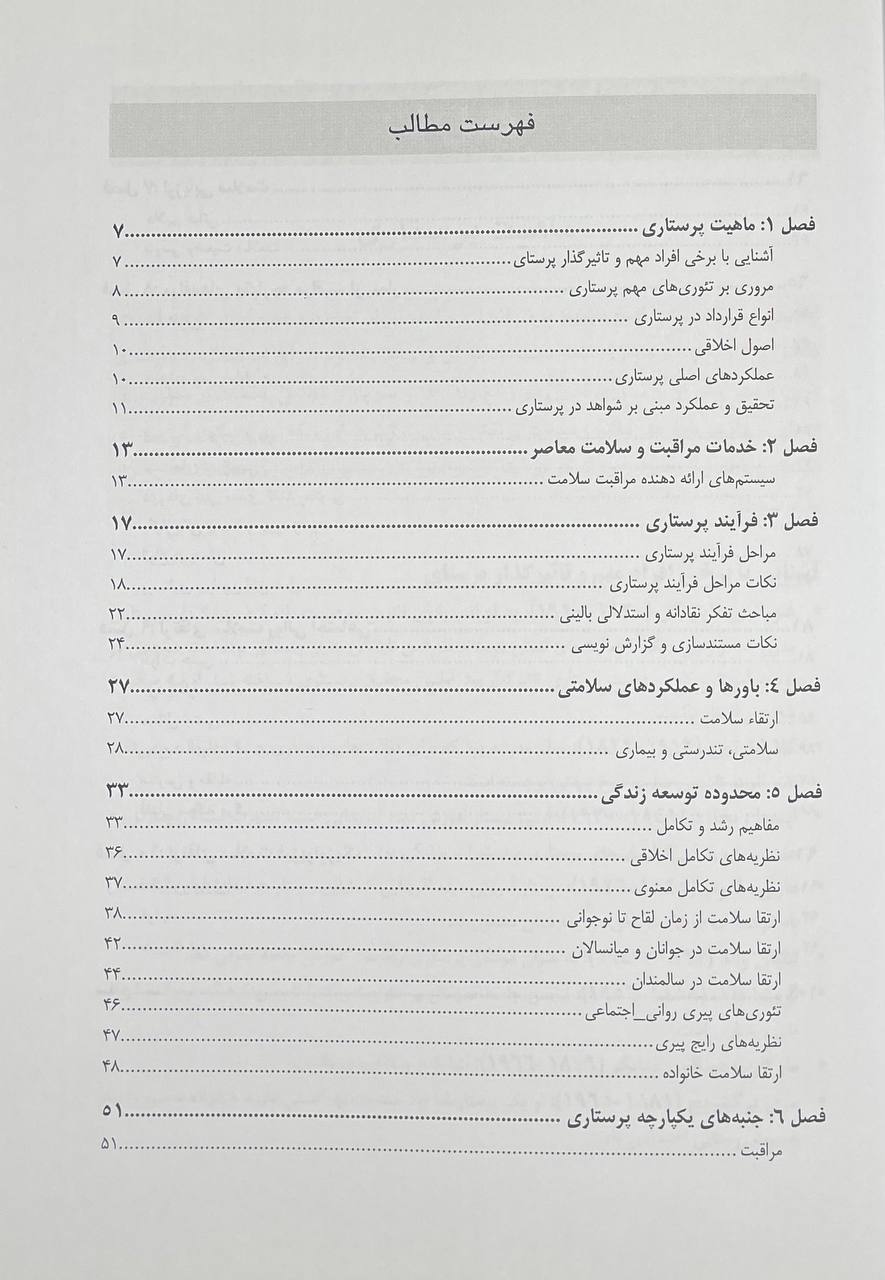 فهرست مطالب
فصل ۱: ماهیت پرستاری ........ ۷
آشنایی با برخی افراد مهم و تاثیرگذار پرستای ........ ۷
مروری بر تئوری‌های مهم پرستاری ........ ۸
انواع قرارداد در پرستاری ........ ۹
اصول اخلاقی ........ ۱۰
عملکردهای اصلی پرستاری ........ ۱۰
تحقیق و عملکرد مبنی بر شواهد در پرستاری ........ ۱۱
فصل ۲: خدمات مراقبت و سلامت معاصر ........ ۱۳
سیستم‌های ارائه دهنده مراقبت سلامت ........ ۱۳
فصل ۳: فرآیند پرستاری ........ ۱۷
مراحل فرآیند پرستاری ........ ۱۷
نکات مراحل فرآیند پرستاری ........ ۱۸
مباحث تفکر نقادانه و استدلالی بالینی ........ ۲۲
نکات مستندسازی و گزارش نویسی ........ ۲۴
فصل ٤: باورها و عملکردهای سلامتی ........ ۲۷
ارتقاء سلامت ........ ۲۷
سلامتی، تندرستی و بیماری ........ ۲۸
فصل ٥: محدوده توسعه زندگی ........ ۳۳
مفاهیم رشد و تکامل ........ ۳۳
نظریه‌های تکامل اخلاقی ........ ۳۶
نظریه‌های تکامل معنوی ........ ۳۷
ارتقا سلامت از زمان لقاح تا نوجوانی ........ ۳۸
ارتقا سلامت در جوانان و میانسالان ........ ۴۲
ارتقا سلامت در سالمندان ........ ۴۴
تئوری‌های پیری روانی_اجتماعی ........ ۴۶
نظریه‌های رایج پیری ........ ۴۷
ارتقا سلامت خانواده ........ ۴۸
فصل ٦: جنبه‌های یکپارچه پرستاری ........ ۵۱
مراقبت ........ ۵۱